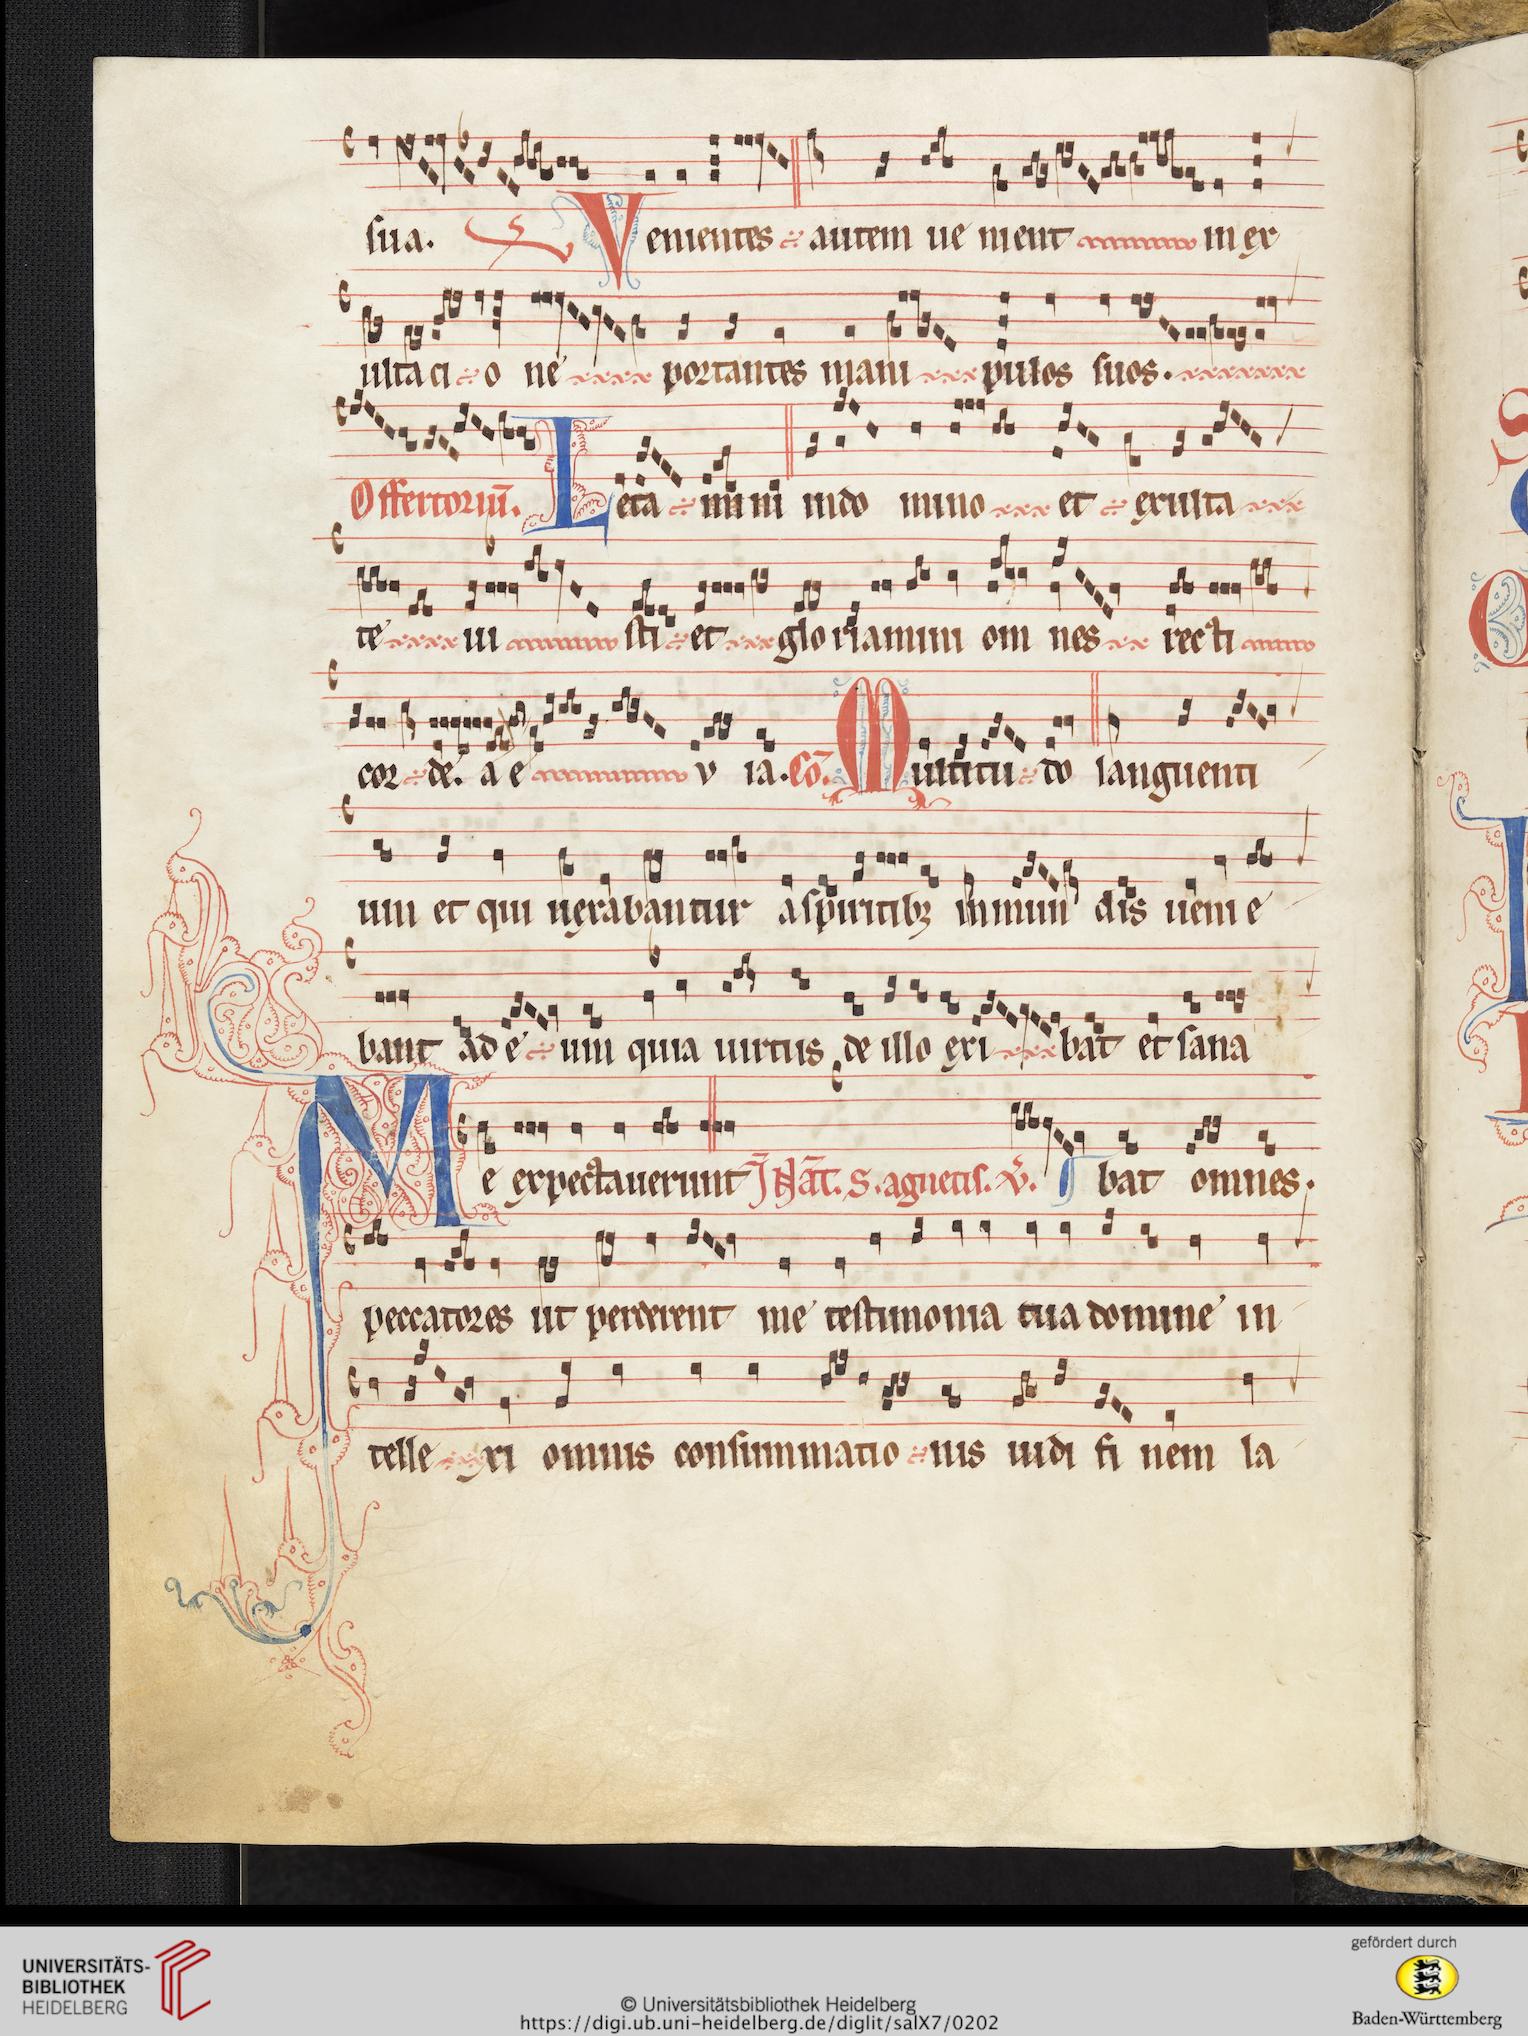 sua. V enientes autem ue nient in ex
ulta ci o ne portantes mani pulos suos.
Offertoriū. L eta mi ni indo mino et exulta
te iu sti et glo riamini om nes recti
cor de. a e v ia. Cō. M ultitu do languenti
um et qui uexabantur a spiritibꝫ inmun dis ueni e
bant ad e um quia uirtus de illo exi bat et sana
M e expectauerunt Jn nat̄. S. agnetis. bat omnes.
peccatores ut perderent me testimonia tua domine in
telle xi omnis consummatio nis uidi fi nem la
UNIVERSITÄTS-
BIBLIOTHEK
HEIDELBERG
© Universitätsbibliothek Heidelberg
https://digi.ub.uni-heidelberg.de/diglit/salX7/0202
gefördert durch
Baden-Württemberg